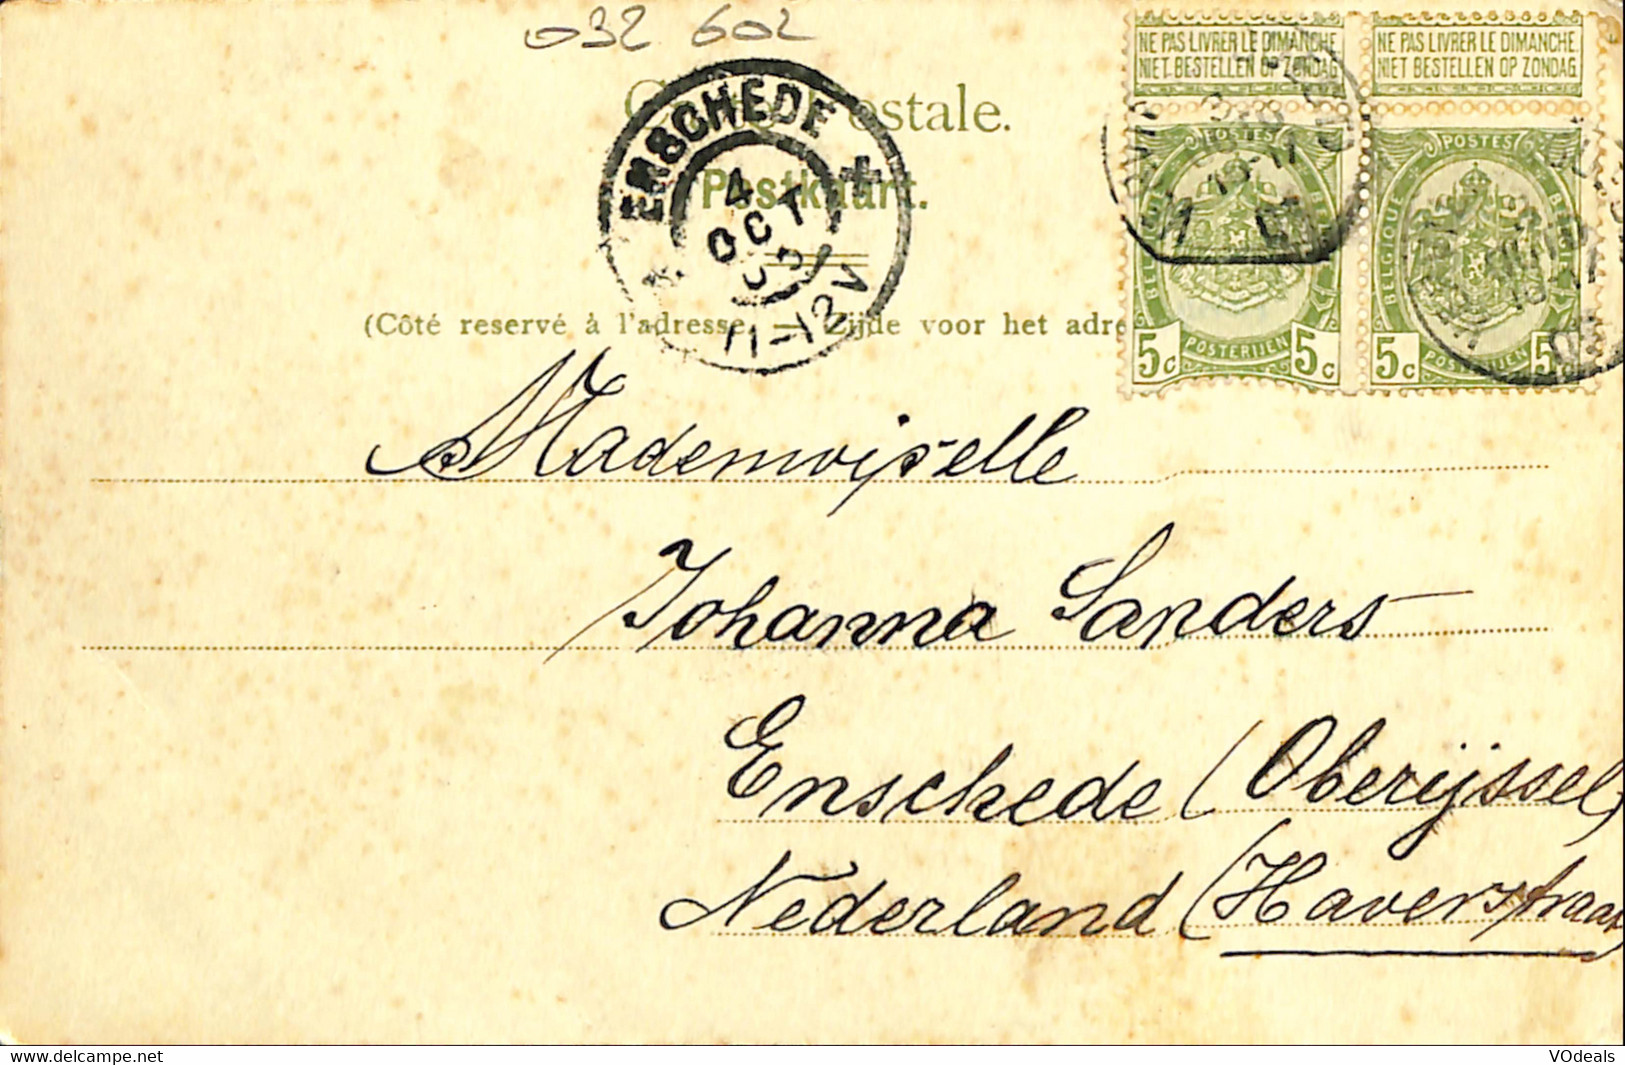 032 602
NE PAS LIVRER LE DIMANCHE
NIET BESTELLEN OP ZONDAG
NE PAS LIVRER LE DIMANCHE
NIET BESTELLEN OP ZONDAG
Postale.
Postkaart.
ENSCHEDE
4
OCT
11-12V
(Côté reservé à l'adresse. — Zijde voor het adre
POSTES
BELGIQUE BELGIE
5c POSTERIJEN 5c
POSTES
BELGIQUE BELGIE
5c POSTERIJEN 5c
Mademoijselle
Johanna Sanders
Enschede (Oberijssel)
Nederland (Haverstraat)
www.delcampe.net
VOdeals